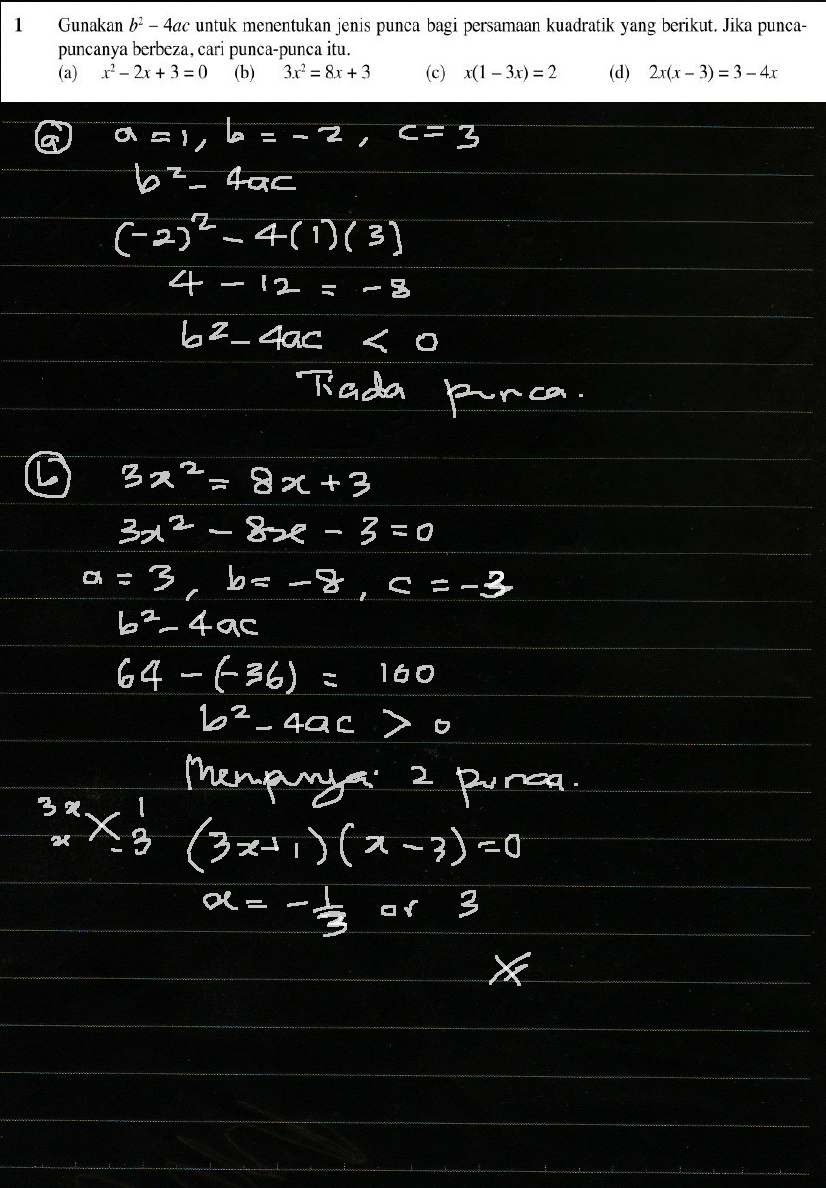 1 Gunakan b² – 4ac untuk menentukan jenis punca bagi persamaan kuadratik yang berikut. Jika punca-
puncanya berbeza, cari punca-punca itu.
(a) x² – 2x + 3 = 0 (b) 3x² = 8x + 3 (c) x(1 – 3x) = 2 (d) 2x(x – 3) = 3 – 4x
(a) a = 1, b = -2, c = 3
b² - 4ac
(-2)² - 4(1)(3)
4 - 12 = -8
b² - 4ac < 0
Tiada punca.
(b) 3x² = 8x + 3
3x² - 8x - 3 = 0
a = 3, b = -8, c = -3
b² - 4ac
64 - (-36) = 100
b² - 4ac > 0
Mempunyai 2 punca.
3x 1
x -3 (3x+1)(x-3)=0
x = -1/3 or 3